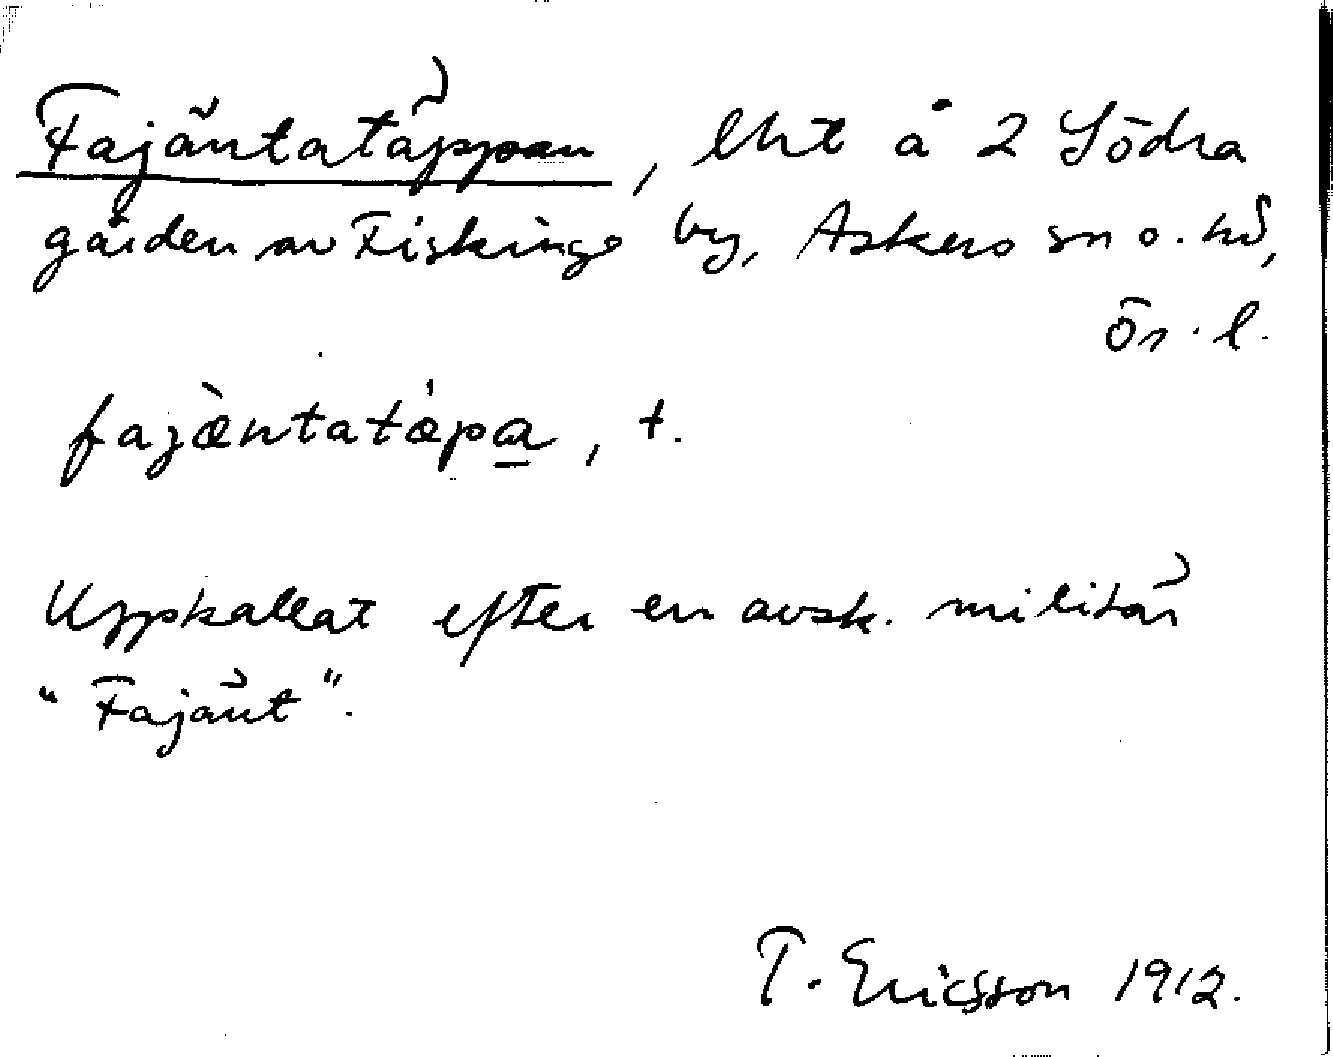 Fajäntatäppan, lht å 2 Södra
gården av Fiskinge by, Askers sn o. hd,
Ör. l.
fajæ̀ntatæ̍pa̲, t.
Uppkallat efter en avsk. militär
"Fajänt".
T. Ericsson 1912.